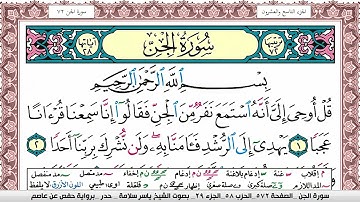 الجزء التاسع والعشرون
سورة الجن ٧٢
سُورَةُ الْجِنِّ
آياتها ٢٨
بِسْمِ اللَّهِ الرَّحْمَٰنِ الرَّحِيمِ
قُلْ أُوحِىَ إِلَىَّ أَنَّهُ ٱسْتَمَعَ نَفَرٌ مِّنَ ٱلْجِنِّ فَقَالُوٓا۟ إِنَّا سَمِعْنَا قُرْءَانًا
عَجَبًا ١ يَهْدِىٓ إِلَى ٱلرُّشْدِ فَـَٔامَنَّا بِهِۦ وَلَن نُّشْرِكَ بِرَبِّنَآ أَحَدًا ٢
سورة الجن . الصفحة ٥٧٢ . الحزب ٥٨ . الجزء ٢٩ . بصوت الشيخ ياسر سلامة . حدر . برواية حفص عن عاصم